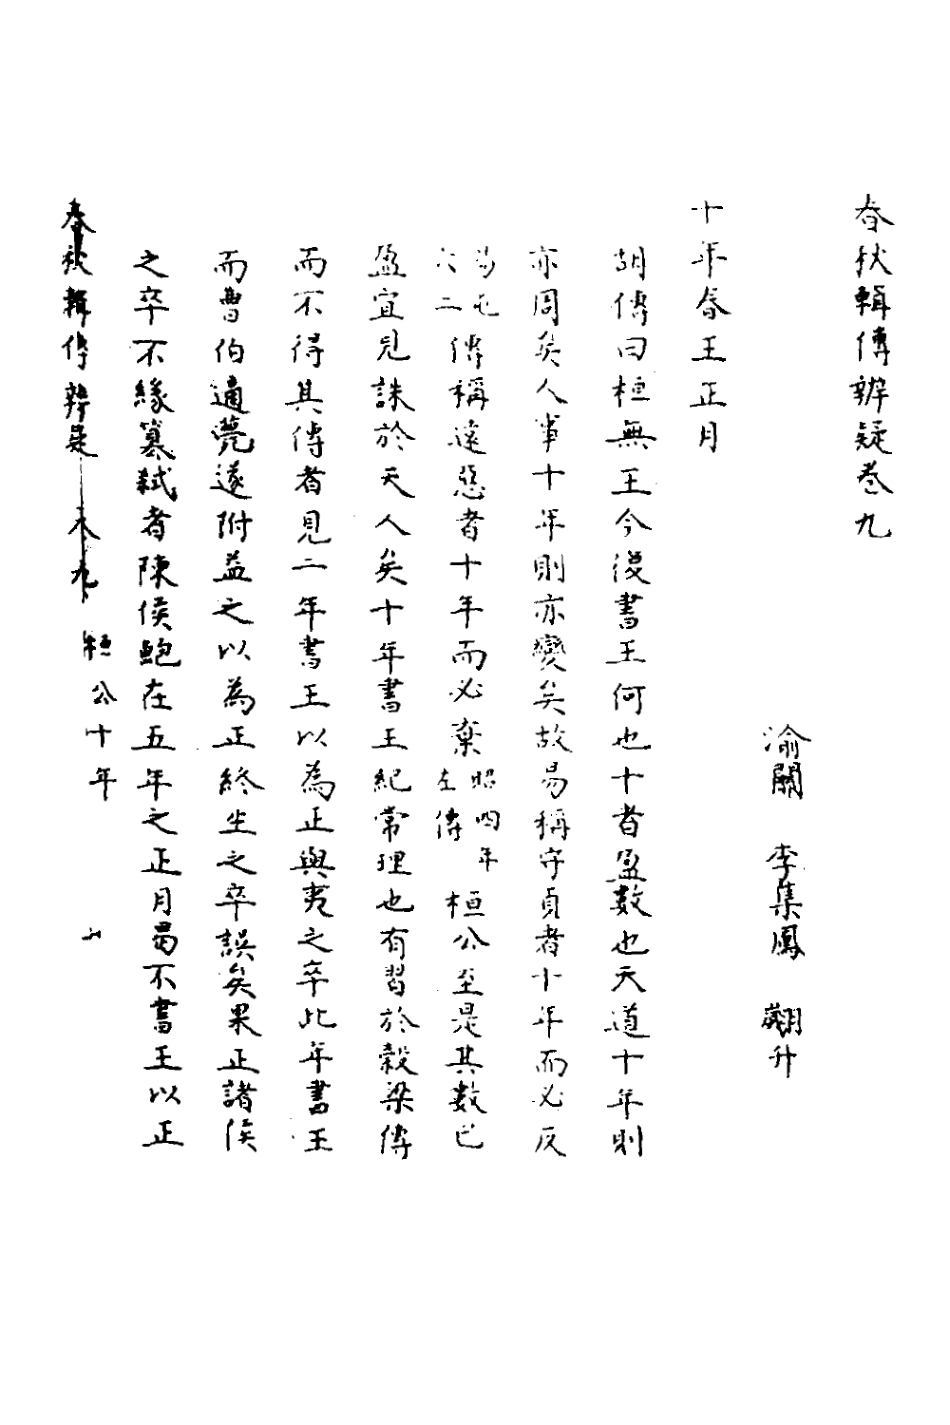 春秋輯傳辨疑卷九
渝關　李集鳳　翽升
十年春王正月
胡傳曰桓無王今復書王何也十者盈數也天道十年則
亦周矣人事十年則亦變矣故易稱守貞者十年而必反
易屯六二傳稱遠惡者十年而必棄昭四年左傳桓公至是其數已
盈宜見誅於天人矣十年書王紀常理也有習於穀梁傳
而不得其傳者見二年書王以為正與夷之卒此年書王
而曹伯適薨遂附益之以為正終生之卒誤矣果正諸侯
之卒不緣篡弒者陳侯鮑在五年之正月曷不書王以正
春秋輯傳辨疑　卷九　桓公十年　一